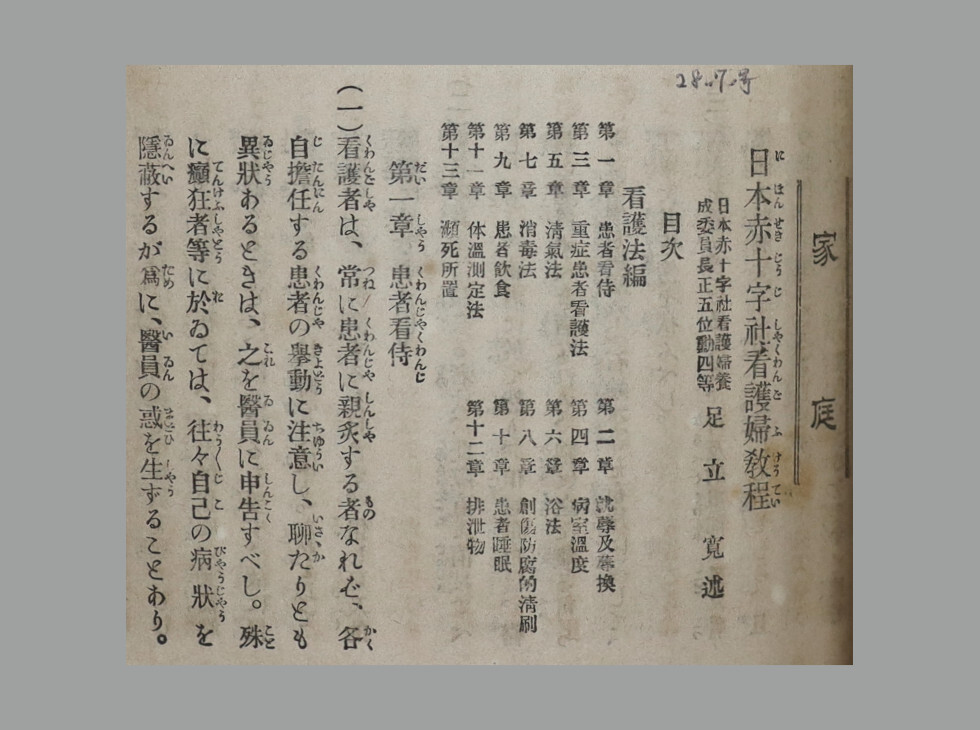 家庭
28.7.号
日本赤十字社看護婦敎程
日本赤十字社看護婦養
成委員長正五位勳四等
足立寬述
目次
看護法編
第一章 患者看侍 第二章 就蓐及蓐換
第三章 重症患者看護法 第四章 病室溫度
第五章 淸氣法 第六章 浴法
第七章 消毒法 第八章 創傷防腐的淸刷
第九章 患者飮食 第十章 患者睡眠
第十一章 体溫測定法 第十二章 排泄物
第十三章 瀕死所置
第一章 患者看侍
(一)看護者は、常に患者に親炙する者なれば、各
自擔任する患者の擧動に注意し、聊たりとも
異狀あるときは、之を醫員に申告すべし。殊
に癲狂者等に於ゐては、往々自己の病狀を
隱蔽するが爲に、醫員の惑を生ずることあり。